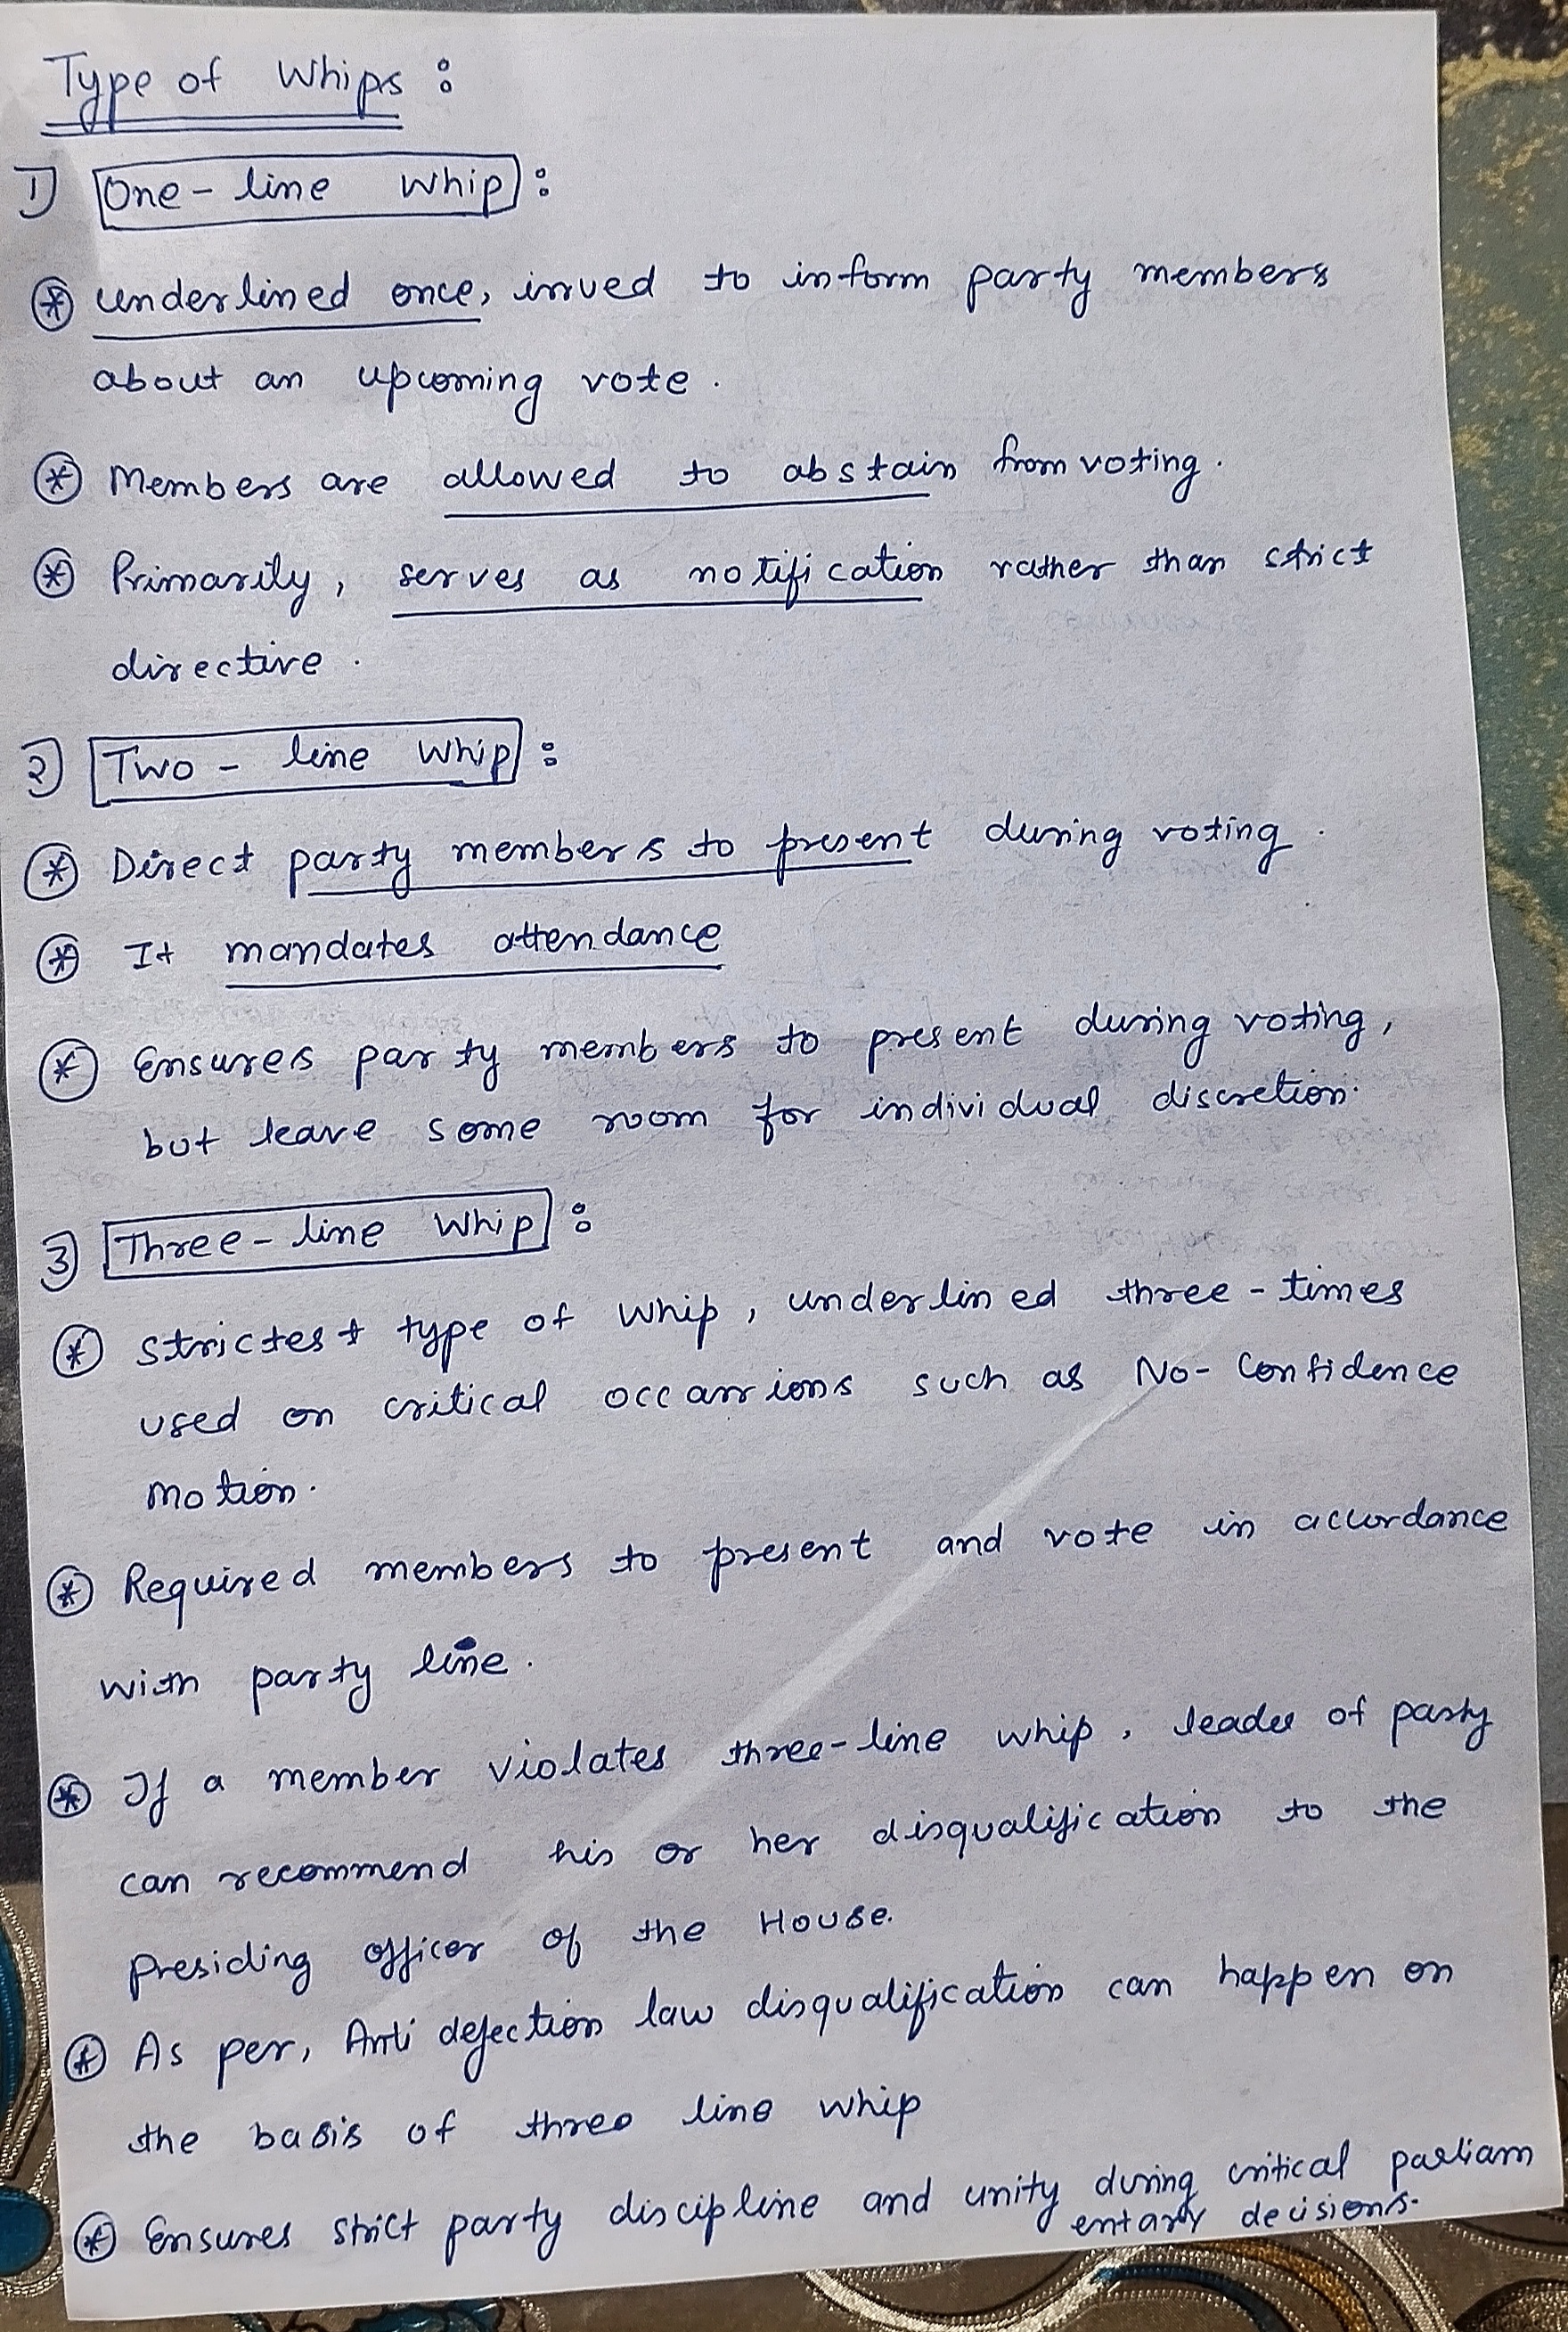 Type of Whips :
1) One-line Whip :
* underlined once, issued to inform party members
about an upcoming vote.
* Members are allowed to abstain from voting.
* Primarily, serves as notification rather than strict
directive.
2) Two-line Whip :
* Direct party members to present during voting.
* It mandates attendance
* Ensures party members to present during voting,
but leave some room for individual discretion.
3) Three-line Whip :
* Strictest type of Whip, underlined three-times
used on critical occassions such as No-Confidence
Motion.
* Required members to present and vote in accordance
with party line.
* If a member violates three-line whip, leader of party
can recommend his or her disqualification to the
Presiding officer of the House.
* As per, Anti defection law disqualification can happen on
the basis of three line whip
* Ensures strict party discipline and unity during critical parliam
entary decisions.